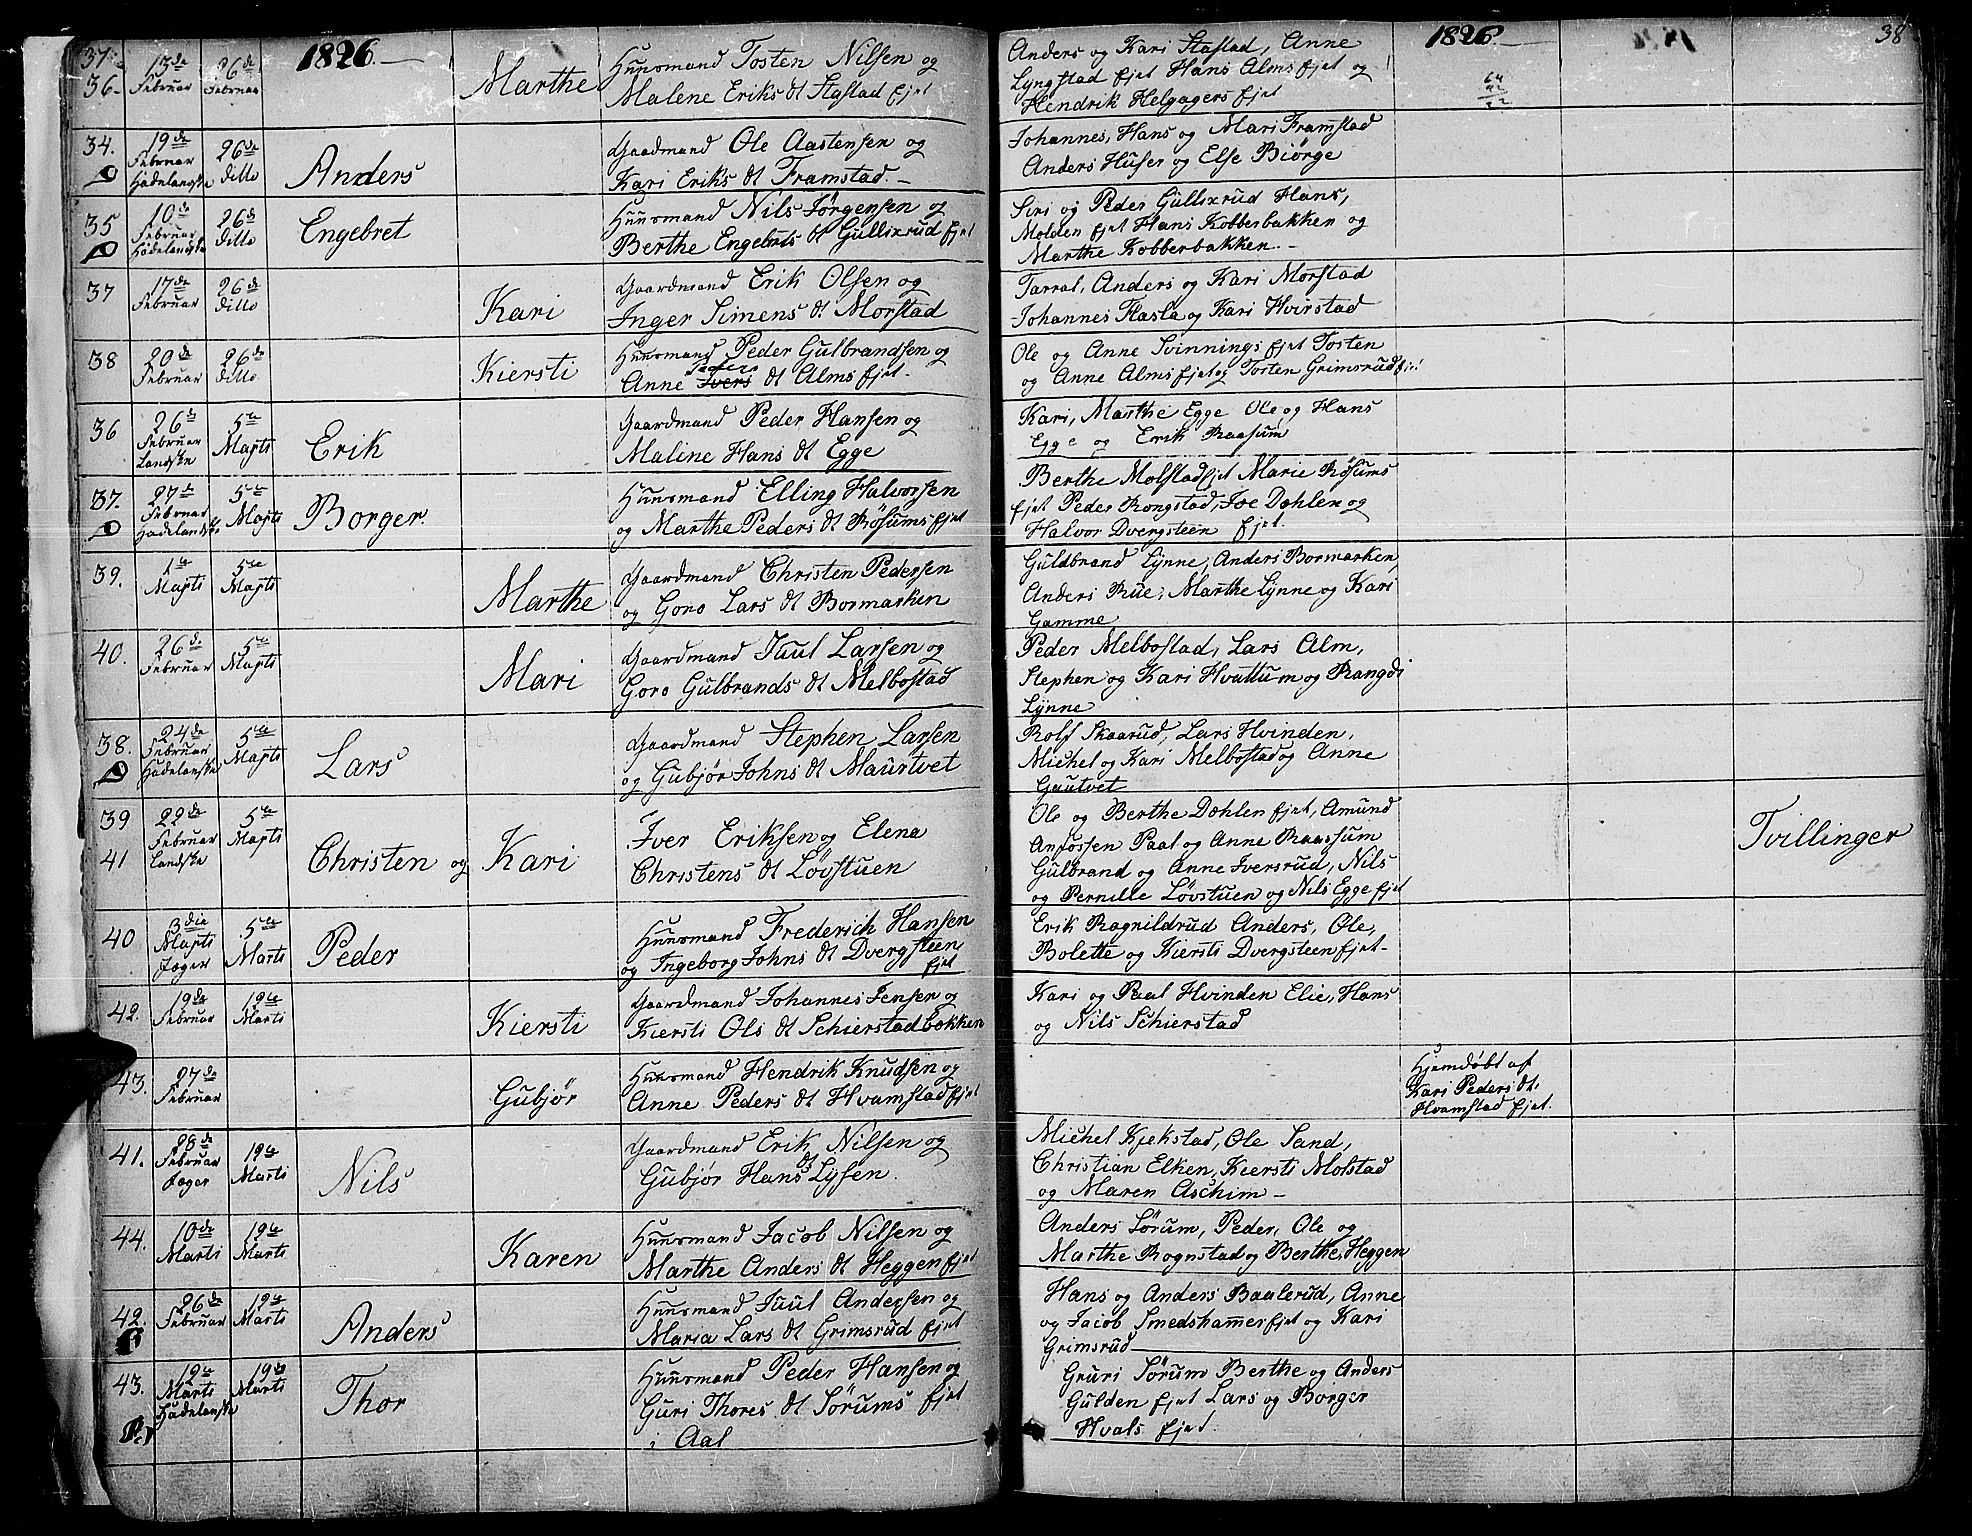 37. 1826. 1826. 38
36. 13de Februar 26de Februar Marthe Huusmand Tosten Nilsen og Malene Eriks dt Stastad fjet
Anders og Kari Stastad, Anne
Lyngstad fjet Hans Alms fjet og
Hendrik Helgagers fjet
34. 19de Februar Hadelandske 26de ditto Anders Gaardmand Ole Aastensen og
Kari Eriks dt Framstad.-
Johannes, Hans og Mari Framstad
Anders Huser og Else Biørge
35 10de Februar Hadelandske 26de ditto Engebret Huusmand Nils Jørgensen og
Berthe Engebrets dt Gullixrud fjet
Siri og Peder Gullixrud Hans,
Molden fjet Hans Kobberbakken og
Marthe Kobberbakken.-
37 17de Februar 26de ditto Kari Gaardmand Erik Olsen og
Inger Simens dt. Morstad
Tarral, Anders og Kari Morstad
Johannes Flasla og Kari Hvirstad
38 20de Februar 26de ditto Kiersti Huusmand Peder Gulbrandsen og
Anne Ivers dt Alms fjet-
Ole og Anne Svinnings fjet Tosten
og Anne Alms fjet og Tosten Grimsrud fjet
36 26de Februar Landske 5te Marti Erik Gaardmand Peder Hansen og
Maline Hans dt Egge
Kari, Marthe Egge Ole og Hans
Egge og Erik Raasum
37. 27de Februar Hadelandske 5te Marti Borger. Huusmand Elling Halvorsen
og Marthe Peders dt Røsums fjet
Berthe Molstad fjet Marie Røsums
fjet Peder Rongstad, Joe Dæhlen og
Halvor Dvergsteen fjet
39. 1te Marti 5te Marti Marthe Gaardmand Christen Pedersen
og Goro Lars dt Bormarken
Guldbrand Lynne, Anders Bormarken,
Anders Rue, Marthe Lynne og Kari
Gamme
40. 26de Februar 5te Marti Mari Gaardmand Juul Larsen og
Goro Gulbrands dt Melbostad
Peder Melbostad, Lars Alm,
Stephen og Kari Hvattum og Rangdi
Lynne
38. 24de Februar Hadelanske 5te Marti Lars Gaardmand Stephen Larsen
og Gubjør Johns dt Maurtvet
Rolf Skaarud, Lars Hvinden,
Michel og Kari Melbostad og Anne
Gautvet
39 41 22de Februar Landske 5te Marti Christen og Kari Iver Eriksen og Elena
Christens dt Løvstuen
Ole og Berthe Dæhlen fjet, Amund
Anfossen Paal og Anne Raassum
Gulbrand og Anne Iversrud, Nils
og Pernille Løvstuen og Nils Egge fjet
Tvillinger
40 3die Marti Jæger 5te Marti Peder Huusmand Frederich Hansen
og Ingeborg Johns dt Dvergsteen
fjet
Erik Ragnildrud Anders, Ole,
Bolette og Kiersti Dvergsteen fjet-
42. 19de Februar 12te Marti Kiersti Gaardmand Johannes Jensen og
Kiersti Ols dt Schierstadbakken
Kari og Paal Hvinden Elie, Hans
og Nils Schierstad
43. 27de Februar Gubjør Huusmand Hendrik Knudsen og
Anne Peders dt Hvamstad fjet
Hjemdøbt af
Kari Peders dt.
Hvamstad fjet.
41. 28de Februar Jæger 19te Marti Nils Gaardmand Erik Nilsen og
Gubjør Hans dt Lysen.
Michel Kjekstad, Ole Sand,
Christian Elken, Kiersti Molstad
og Maren Aschim-
44. 10de Marti 19te Marti Karen Huusmand Jacob Nilsen og
Marthe Anders dt Heggen fjet
Anders Sørum, Peder, Ole og
Marthe Rognstad og Berthe Heggen
42. 26de Februar 19te Marti Anders Huusmand Juul Andersen og
Maria Lars dt Grimsrud fjet
Hans og Anders Baalerud, Anne
og Jacob Smedshammer fjet og Kari
Grimsrud
43. 12te Marti Hadelanske 19de Marti Thor Huusmand Peder Hansen og
Guri Thores dt Sørums fjet
i Aal
Gruri Sørum Berthe og Anders
Gulden fjet Lars og Borger
Hvals fjet.